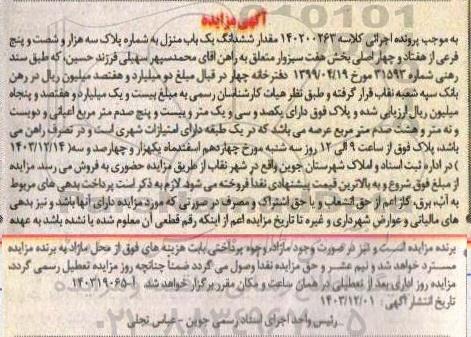 آگهی مزایده
به موجب پرونده اجرائی کلاسه ۱۴۰۲۰۰۲۶۳ مقدار ششدانگ یک باب منزل به شماره پلاک سه هزار و شصت و پنج
فرعی از هفتاد و چهار اصلی بخش هفت سبزوار متعلق به راهن آقای محمدسپهر سهیلی فرزند حسین، که طبق سند
رهنی شماره ۳۱۵۹۳ مورخ ۱۳۹۹/۰۴/۱۹ دفترخانه چهار در قبال مبلغ دو میلیارد و هفتصد میلیون ریال در رهن
بانک سپه شعبه نقاب قرار گرفته و طبق نظر هیات کارشناسان رسمی به مبلغ بیست و یک میلیارد و هفتصد و پنجاه
میلیون ریال ارزیابی شده و پلاک فوق دارای یکصد و سی و یک متر و بیست و پنج صدم متر مربع اعیانی و دویست
و نه متر و هشت صدم متر مربع عرصه می باشد که در یک طبقه دارای امتیازات شهری است و در تصرف راهن می
باشد. پلاک فوق از ساعت ۹ الی ۱۲ روز سه شنبه مورخ چهاردهم اسفندماه یکهزار و چهارصد و سه( ۱۴۰۳/۱۲/۱۴
) در اداره ثبت اسناد و املاک شهرستان جوین واقع در شهر نقاب از طریق مزایده حضوری به فروش می رسد. مزایده
از مبلغ فوق شروع و به بالاترین قیمت پیشنهادی نقداً فروخته می شود. لازم به ذکر است پرداخت بدهی های مربوط
به آب، برق، گاز اعم از حق انشعاب و یا حق اشتراک و مصرف در صورتی که مورد مزایده دارای آنها باشد و نیز بدهی
های مالیاتی و عوارض شهرداری و غیره تا تاریخ مزایده اعم از اینکه رقم قطعی آن معلوم شده یا نشده باشد به عهده
برنده مزایده است و نیز در صورت وجود مازاد، وجوه پرداختی بابت هزینه های فوق از محل مازاد به برنده مزایده
مسترد خواهد شد و نیم عشر و حق مزایده نقداً وصول می گردد ضمناً چنانچه روز مزایده تعطیل رسمی گردد،
مزایده روز اداری بعد از تعطیلی در همان ساعت و مکان مقرر برگزار خواهد شد. آ-۱۴۰۳۱۹۰۶۵
تاریخ انتشار آگهی: ۱۴۰۳/۱۲/۰۱
رئیس واحد اجرای اسناد رسمی جوین - عباس تجلی